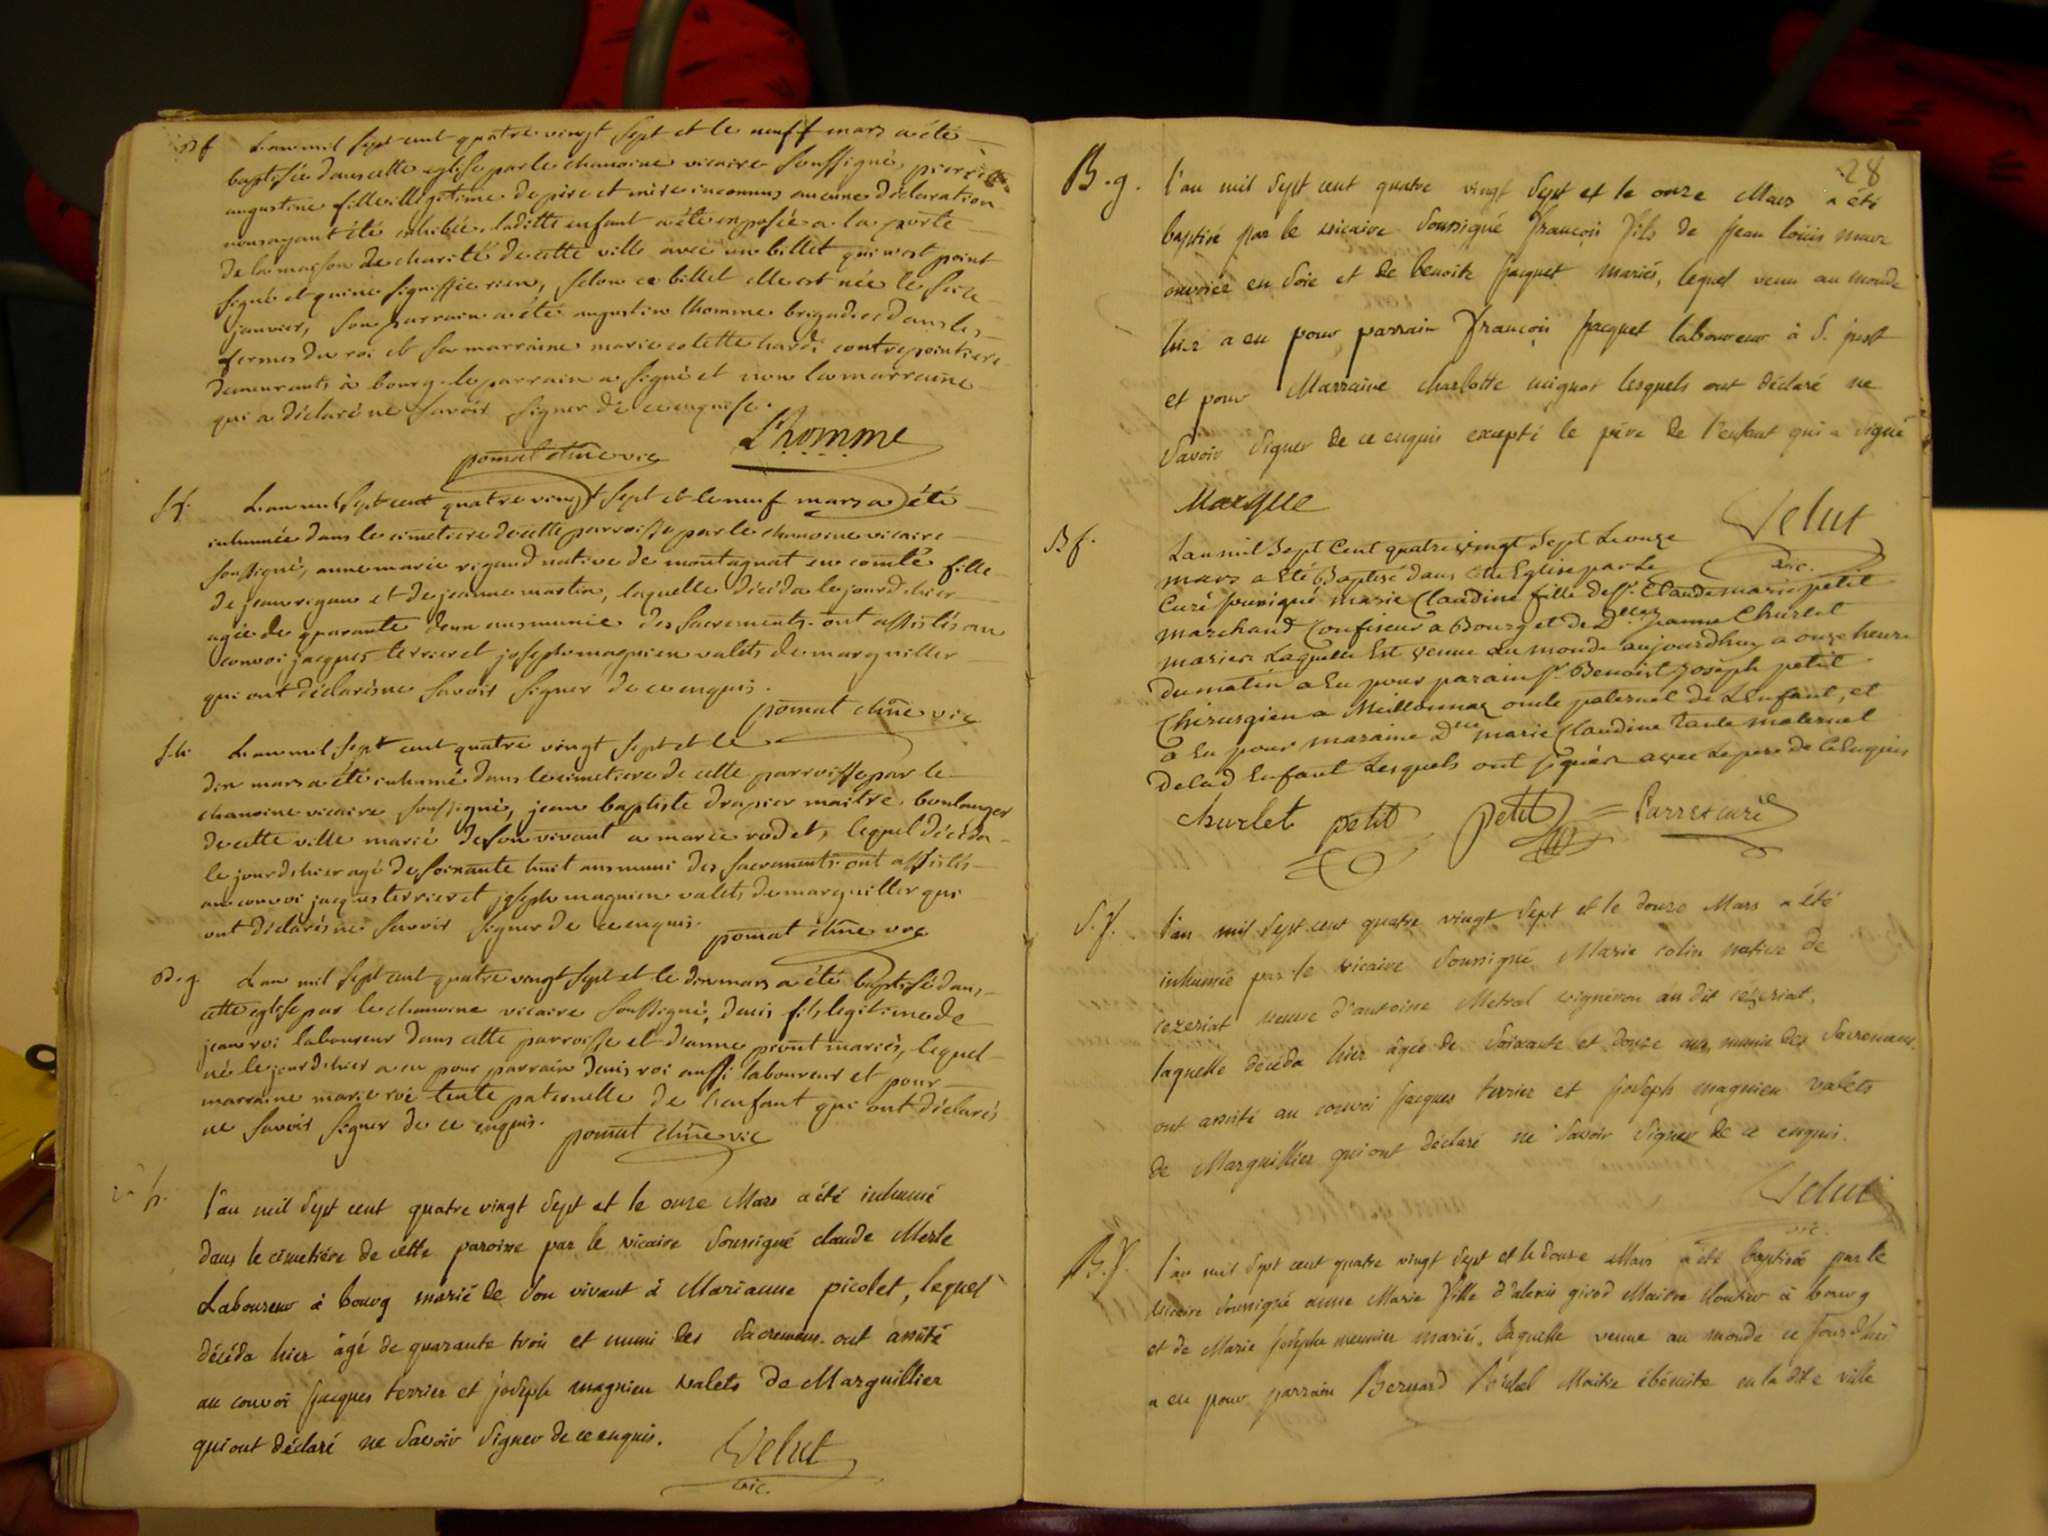 B f L'an mil sept cent quatre vingt sept et le neuff mars a été
baptisée dans cette eglise par le chanoine vicaire soussigné, pierrette
augustine fille illégitime de père et mère inconnus aucune déclaration
nous ayant été exhibée. laditte enfant a été exposée a la porte
de la maison de charité de cette ville avec un billet qui n'est point
signé et qui ne signiffie rien, selon ce billet elle est née le seize
janvier, son parrain a été augustin lhomme brigadier dans les
fermes du roi et sa marraine marie colette hardi contrepointiere
demeurants à bourg. le parrain a signé et non la marraine
qui a déclaré ne savoir signer de ce enquise.
pomat chne vic L'homme
S f. L'an mil sept cent quatre vingt sept et le neuf mars a été
inhumée dans le cimetiere de cette parroisse par le chanoine vicaire
soussigné, anne marie rigaud native de montagnat en comté fille
de jean rigau et de jeanne martin, laquelle décéda le jour d'hier
agée de quarante deux ans munie des sacrements. ont assistés au
convoi jacques terrier et joseph magnien valets de marguiller
qui ont déclarés ne savoir signer de ce enquis.
pomat chne vic
S.h. L'an mil sept cent quatre vingt sept et le
dix mars a été inhumé dans le cimetiere de cette parroisse par le
chanoine vicaire soussigné, jean baptiste drapier maitre boulanger
de cette ville marié de son vivant a marie rodet, lequel décéda
le jour d'hier agé de soixante huit ans muni des sacrements. ont assistés
au convoi jacques terrier et joseph magnien valets de marguiller qui
ont déclarés ne savoir signer de ce enquis.
pomat chne vic
B.g. L'an mil sept cent quatre vingt sept et le dix mars a été baptisé dans
cette eglise par le chanoine vicaire soussigné, denis fils legitime de
jean roi laboureur dans cette parroisse et d'anne pront mariés, lequel
né le jour d'hier a eu pour parrain denis roi aussi laboureur et pour
marraine marie roi tente paternelle de l'enfant qui ont déclarés
ne savoir signer de ce enquis. pomat chne vic
h. l'an mil sept cent quatre vingt sept et le onze Mars a été inhumé
dans le cimetiére de cette paroisse par le vicaire soussigné claude Merle
Laboureur à bourg marié de son vivant à Marianne picolet, lequel
décéda hier âgé de quarante trois et muni des sacremens. ont assisté
au convoi jacques terrier et joseph magnien valets de Marguillier
qui ont déclaré ne savoir signer de ce enquis.
Velut
vic.
28
B.g. l'an mil sept cent quatre vingt sept et le onze Mars a été
baptisé par le vicaire soussigné françois fils de jean loüis marc
ouvrier en soie et de benoite jacquet mariés, lequel venu au monde
hier a eu pour parrain françois jacquet laboureur à S. just
et pour Marraine charlotte mignot lesquels ont déclaré ne
savoir signer de ce enquis excepté le pére de l'enfant qui a signé
Velut
vic.
B f. L'an mil Sept Cent quatre vingt Sept Le onze
mars a Eté Baptisé dans cette Eglise par Le
Curé soussigné marie Claudine fille de Sr. Claude marie petit
marchand Confiseur a Bourg et de Dlle jeanne Churlet
mariés Laquelle Est venue au monde aujourdhuy a onze heure
du matin a Eu pour parain Sr. Benoist joseph petit
Chirurgien a Meillonnaz oncle paternel de L'Enfant, et
a Eu pour maraine Dlle marie Claudine tante maternel
delad Enfant Lesquels ont signés avec Le pere de Ce Enquis
churlet petit petit curé
S.f. l'an mil sept cent quatre vingt sept et le douze Mars a été
inhumée par le vicaire soussigné Marie colin native de
cezeriat veuve d'antoine Metral vigneron au dit cézeriat,
laquelle décéda hier âgée de soixante et douze ans, munie des sacremens.
ont assisté au convoi jacques terrier et joseph magnien valets
de Marguillier qui ont déclaré ne savoir signer de ce enquis.
Velut
vic.
B.f. l'an mil sept cent quatre vingt sept et le douze Mars a été baptisée par le
vicaire soussigné anne Marie fille d'alexis girod Maitre cloutier à bourg
et de Marie josephe meunier mariés, laquelle venue au monde ce jourd'hui
a eu pour parrain Bernard Maitre ébéniste en la dite ville